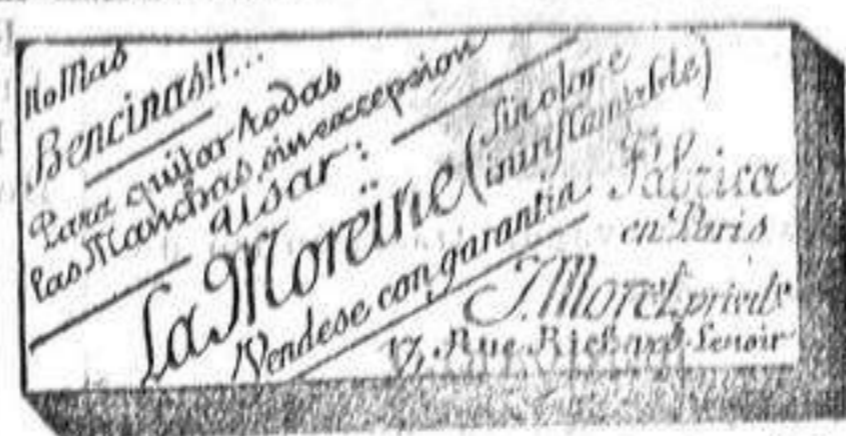 No Mas
Bencinas!!...
Para quitar todas
las Manchas sin excepsion
usar:
La Moreïne (Sin olor e
ininflamable)
Vendese con garantia
Fábrica
en Paris
J. Morel,
17, Rue Richard-Lenoir